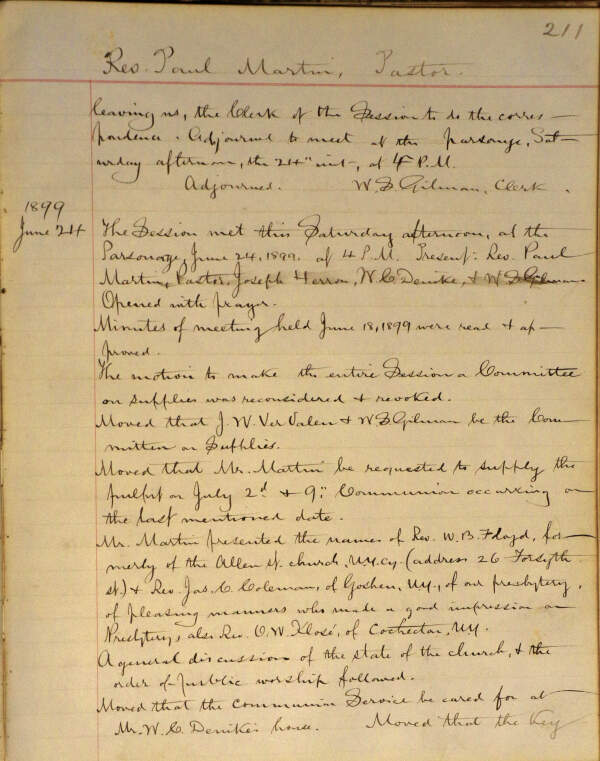 211
Rev. Paul Martin, Pastor.
leaving us, the Clerk of the Session to do the corres-
pondence. Adjourned to meet at the parsonge, Sat-
urday afternoon, the 24" inst-, at 4 P.M.
Adjourned. W. S. Gilman, Clerk.
1899
June 24
The Session met this Saturday afternoon, at the
Parsonage, June 24, 1899. at 4 P.M. Present: Rev. Paul
Martin, Pastor, Joseph Herron, W. C. Denike, & W. S. Gilman.
Opened with prayer.
Minutes of meeting held June 18, 1899 were read & ap-
proved.
The motion to make the entire Session a Committee
on supplies was reconsidered & revoked.
Moved that J. W. Ver Valen & W. S. Gilman be the Com-
mittee on Supplies.
Moved that Mr. Martin be requested to supply the
pulpit on July 2d. & 9": Communion occurring on
the last mentioned date.
Mr. Martin presented the names of Rev. W. B. Floyd, for-
merly of the Allen st. church, N.Y.cy. (address 26 Forsyth
st.) & Rev. Jas. C. Coleman, of Goshen, N.Y., of our presbytery,
of pleasing manners who made a good impression on
Presbytery, also Rev. O. W. Klosé, of Cochecton, N.Y.
A general discussion of the state of the church, & the
order of public worship followed.
Moved that the Communion Service be cared for at
Mr. W. C. Denike's house. Moved that the Key